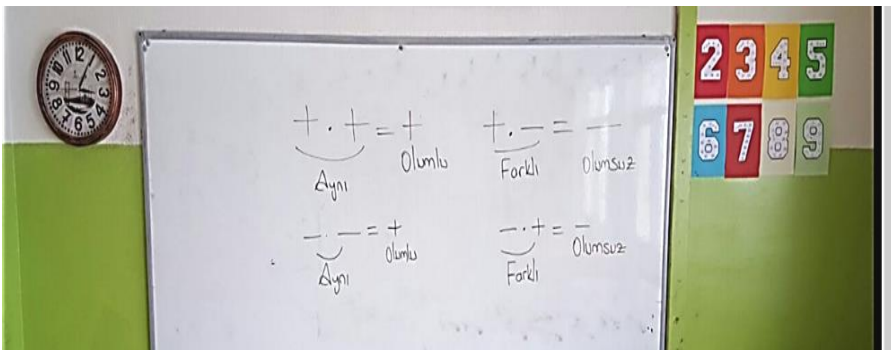 + . + = +
Aynı Olumlu
+ . − = −
Farklı Olumsuz
− . − = +
Aynı Olumlu
− . + = −
Farklı Olumsuz
2 3 4 5
6 7 8 9
11 12 2 3 4 5 6 7 8 9